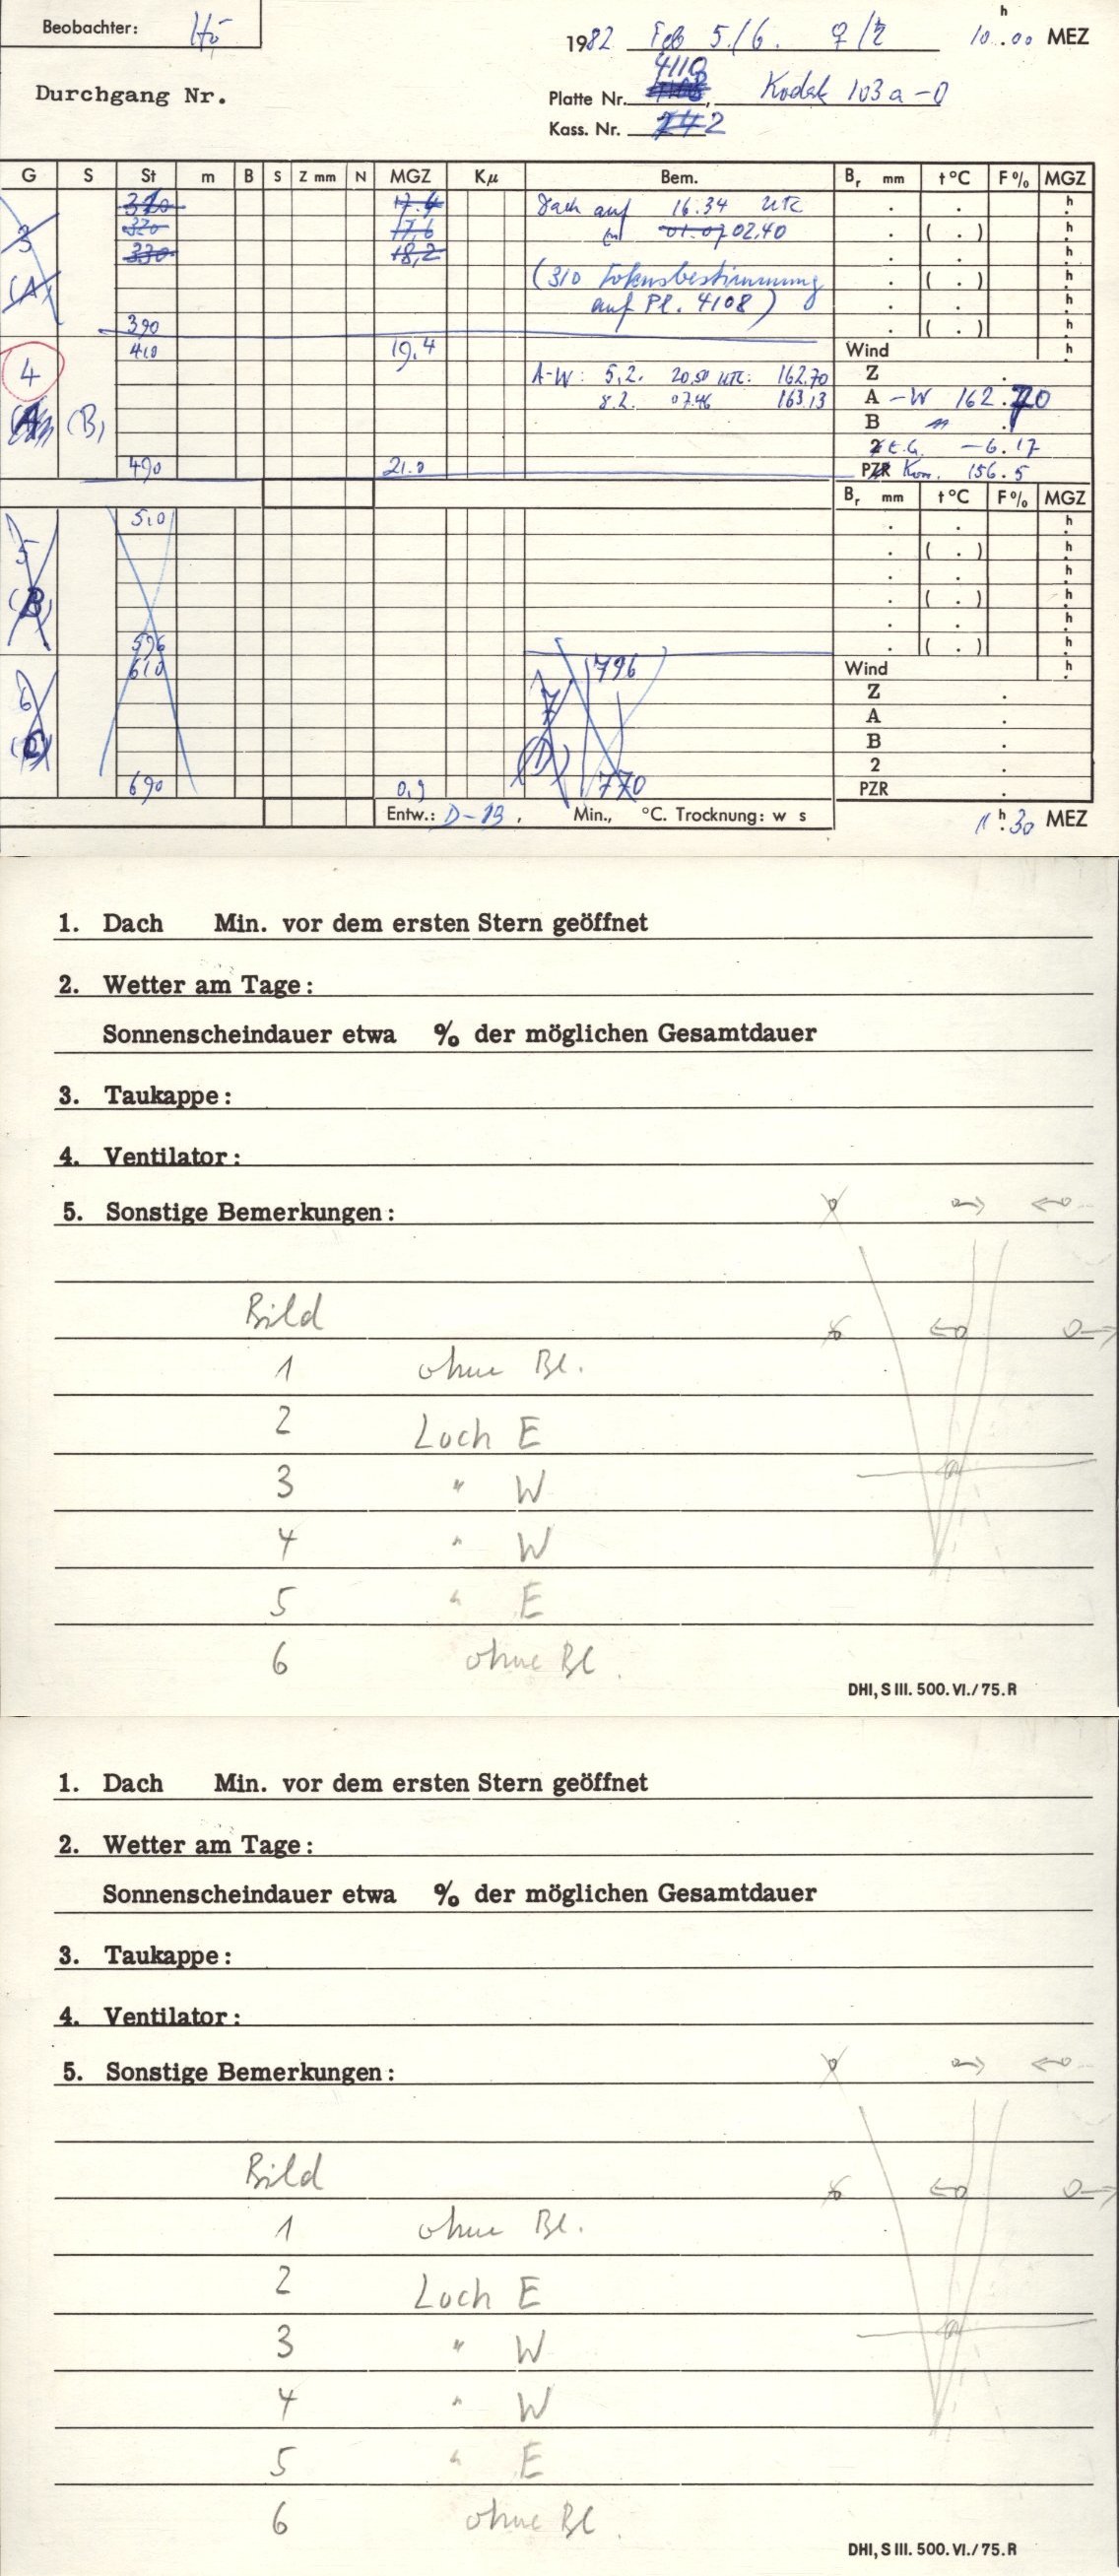 Beobachter: Hö
h
1982 Feb 5./6. ♀/♄ 10 00 MEZ
4110
Durchgang Nr.
Platte Nr. 4108, Kodak 103a-O
Kass. Nr. 2
G S St m B S Z mm N MGZ Kµ Bem. Br mm t°C F% MGZ
310 17.4 Dach auf 16.34 UTC . . h
3 320 17,6 zu 01.07 02.40 . ( . ) h
330 18,2 . . h
(A) (310 Fokusbestimmung . ( . ) h
auf Pl. 4108) . . h
390 . ( . ) h
410 19,4 Wind h
4 A-W: 5.2. 20.50 UTC: 162.70 Z .
(B) 8.2. 07.46 163.13 A -W 162.70
B " .
2 -6.17
490 21.0 PZR Korr. 156.5
Br mm t°C F% MGZ
510 . . h
5 . ( . ) h
. . h
(B) . ( . ) h
. . h
596 . ( . ) h
610 796 Wind h
6 7 Z .
A .
(C) (D) B .
2 .
690 0,9 770 PZR .
Entw.: D-19, Min., °C. Trocknung: w s 11 h 30 MEZ
1. Dach Min. vor dem ersten Stern geöffnet
2. Wetter am Tage:
Sonnenscheindauer etwa % der möglichen Gesamtdauer
3. Taukappe:
4. Ventilator:
5. Sonstige Bemerkungen:
Bild
1 ohne Bl.
2 Loch E
3 " W
4 " W
5 " E
6 ohne Bl.
DHI, S III. 500. VI./75. R
1. Dach Min. vor dem ersten Stern geöffnet
2. Wetter am Tage:
Sonnenscheindauer etwa % der möglichen Gesamtdauer
3. Taukappe:
4. Ventilator:
5. Sonstige Bemerkungen:
Bild
1 ohne Bl.
2 Loch E
3 " W
4 " W
5 " E
6 ohne Bl.
DHI, S III. 500. VI./75. R